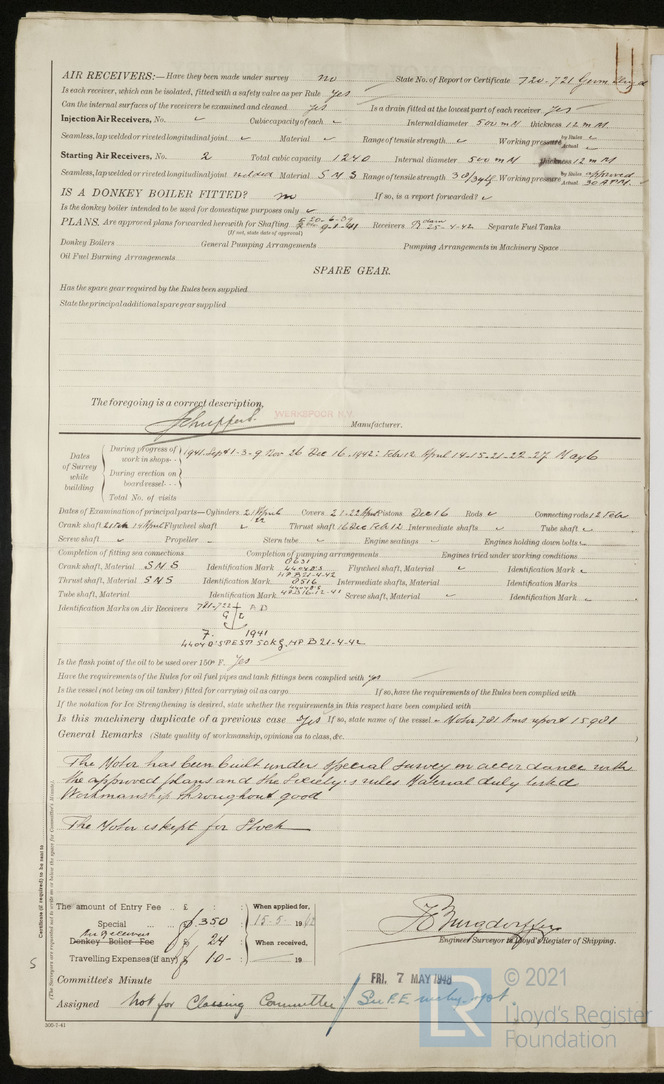 AIR RECEIVERS:—Have they been made under survey no State No. of Report or Certificate 720-721 Germ Lloyd
Is each receiver, which can be isolated, fitted with a safety valve as per Rule yes
Can the internal surfaces of the receivers be examined and cleaned yes Is a drain fitted at the lowest part of each receiver yes
Injection Air Receivers, No. Cubic capacity of each Internal diameter 500 mM thickness 12 mM
Seamless, lap welded or riveted longitudinal joint Material Range of tensile strength Working pressure by Rules Actual
Starting Air Receivers, No. 2 Total cubic capacity 1240 Internal diameter 500 mM thickness 12 mM
Seamless, lap welded or riveted longitudinal joint welded Material S M S Range of tensile strength 30/34 Kg Working pressure by Rules approved Actual 30 ATM.
IS A DONKEY BOILER FITTED? no If so, is a report forwarded?
Is the donkey boiler intended to be used for domestique purposes only
PLANS. Are approved plans forwarded herewith for Shafting 20-6-39 9-1-41 Receivers 25-4-42 Separate Fuel Tanks
(If not, state date of approval)
Donkey Boilers General Pumping Arrangements Pumping Arrangements in Machinery Space
Oil Fuel Burning Arrangements
SPARE GEAR.
Has the spare gear required by the Rules been supplied
State the principal additional spare gear supplied
The foregoing is a correct description,
WERKSPOOR N.V.
Manufacturer.
Dates of Survey while building
During progress of work in shops - - 1941. Sept 1-3-9 Nov 26 Dec 16-1942: Febr 12 April 14-15-21-22-27 May 6
During erection on board vessel - - -
Total No. of visits
Dates of Examination of principal parts—Cylinders 21 April 22 Covers 21-22 April Pistons Dec 16 Rods Connecting rods 12 Febr
Crank shaft 21 Feb 14 April Flywheel shaft Thrust shaft 16 Dec Febr 12 Intermediate shafts Tube shaft
Screw shaft Propeller Stern tube Engine seatings Engines holding down bolts
Completion of fitting sea connections Completion of pumping arrangements Engines tried under working conditions
Crank shaft, Material S M S Identification Mark 0631 4404 D'S HP B 21-4-42 Flywheel shaft, Material Identification Mark
Thrust shaft, Material S M S Identification Mark 0516 4404 D'S HP B 16-12-41 Intermediate shafts, Material Identification Marks
Tube shaft, Material Identification Mark Screw shaft, Material Identification Mark
Identification Marks on Air Receivers 721-722 A D
G L
7. 1941
4404 D'S TEST 50 Kg. HP B 21-4-42
Is the flash point of the oil to be used over 150° F. Yes
Have the requirements of the Rules for oil fuel pipes and tank fittings been complied with yes
Is the vessel (not being an oil tanker) fitted for carrying oil as cargo If so, have the requirements of the Rules been complied with
If the notation for Ice Strengthening is desired, state whether the requirements in this respect have been complied with
Is this machinery duplicate of a previous case Yes If so, state name of the vessel Motor 781 Ams report 15981
General Remarks (State quality of workmanship, opinions as to class, &c. )
The Motor has been built under special survey in accordance with
the approved plans and the Society's rules Material duly tested
Workmanship throughout good
The Motor is kept for Stock
Certificate (if required) to be sent to
(The Surveyors are requested not to write on or below the space for Committee's Minute.)
The amount of Entry Fee .. £ : : When applied for,
Special ... ... £ 350 15-5-1942
Air Receivers
Donkey Boiler Fee £ 24 When received,
Travelling Expenses (if any) £ 10- 19
Engineer Surveyor to Lloyd's Register of Shipping.
Committee's Minute FRI. 7 MAY 1948
Assigned Not for Classing Committee
300-7-41
5
LR
© 2021
Lloyd's Register
Foundation